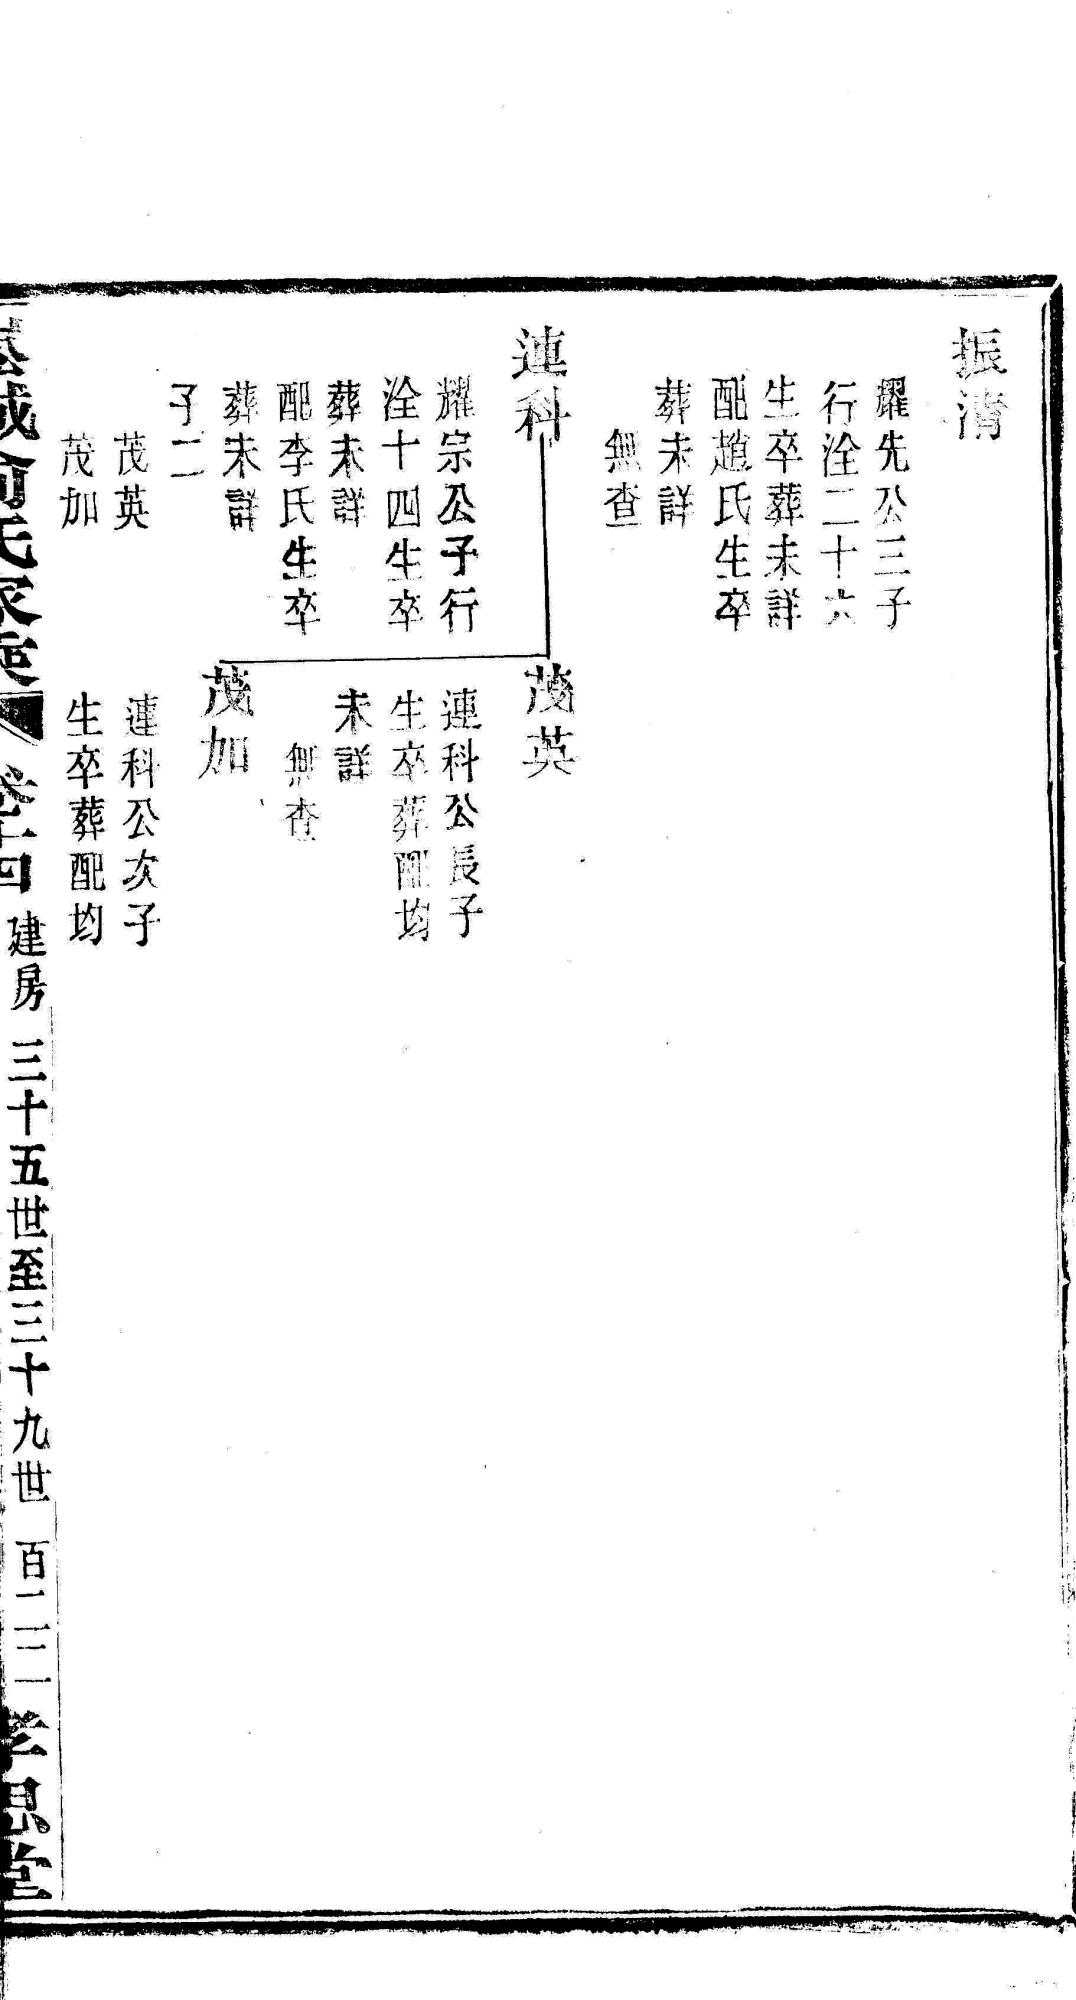 振清
耀先公三子
行洤二十六
生卒葬未詳
配趙氏生卒
葬未詳
無查
連科
耀宗公子行
洤十四生卒
葬未詳
配李氏生卒
葬未詳
子二
茂英
茂加
茂英
連科公長子
生卒葬配均
未詳
無查
茂加
連科公次子
生卒葬配均
城俞氏家乘
卷十四
建房
三十五世至三十九世
孝思堂